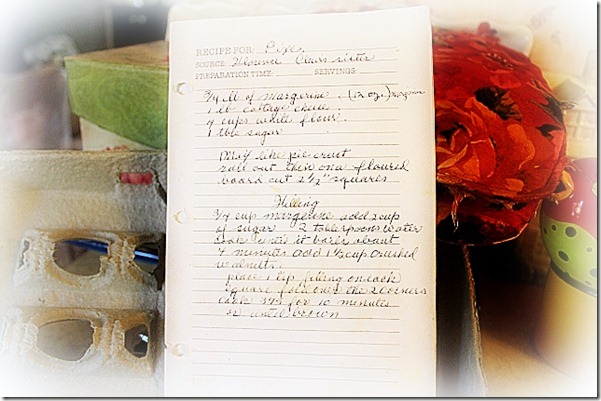 RECIPE FOR: Pixe
SOURCE Florence Omas sister
PREPARATION TIME: SERVINGS:
3/4 lb of margerine . (12 ozs) margerine
1 lb cottage cheese .
4 cups white flour .
1 tbs sugar
Mix like pie crust
roll out thin on a floured
board cut 2 1/2" squares
Filling
3/4 cup margerine add 2 cup
of sugar 2 tablespoons water
cook until it boils about
4 minutes add 1 1/2 cup crushed
walnuts.
place 1 tsp filing on each
square fold over the 2 corners
cook 375 for 10 minutes
or until brown